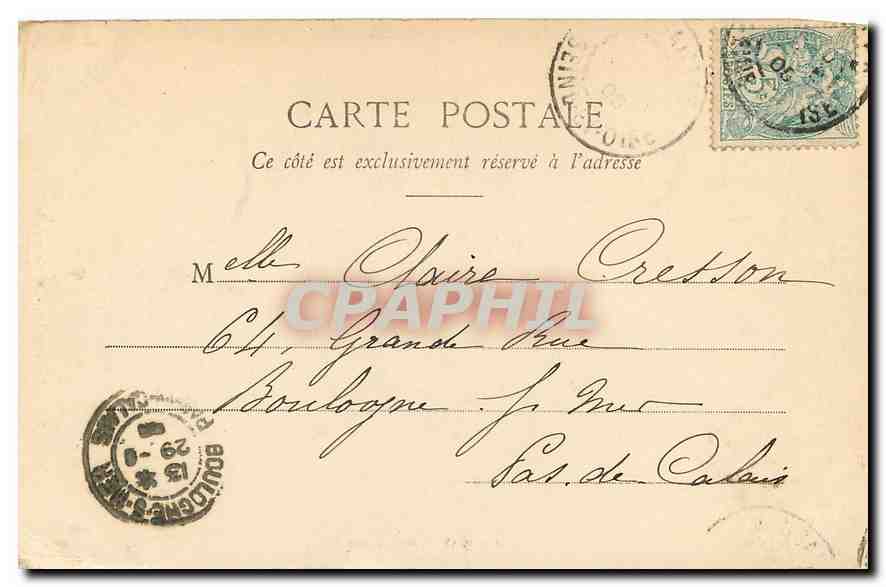 CARTE POSTALE
Ce côté est exclusivement réservé à l'adresse
Melle Claire Cresson
CPAPHIL
64, Grande Rue
Boulogne s/ Mer
Pas. de Calais
BOULOGNE-S-MER
PAS CALAIS
13
29
5
OISE